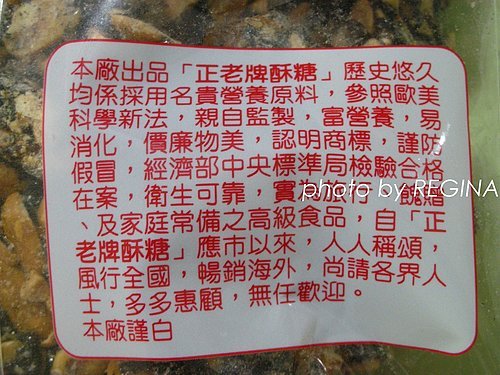 本廠出品「正老牌酥糖」歷史悠久
均係採用名貴營養原料，參照歐美
科學新法，親自監製，富營養，易
消化，價廉物美，認明商標，謹防
假冒，經濟部中央標準局檢驗合格
在案，衛生可靠，實為旅行、餽贈
、及家庭常備之高級食品，自「正
老牌酥糖」應市以來，人人稱頌，
風行全國，暢銷海外，尚請各界人
士，多多惠顧，無任歡迎。
本廠謹白
photo by REGINA